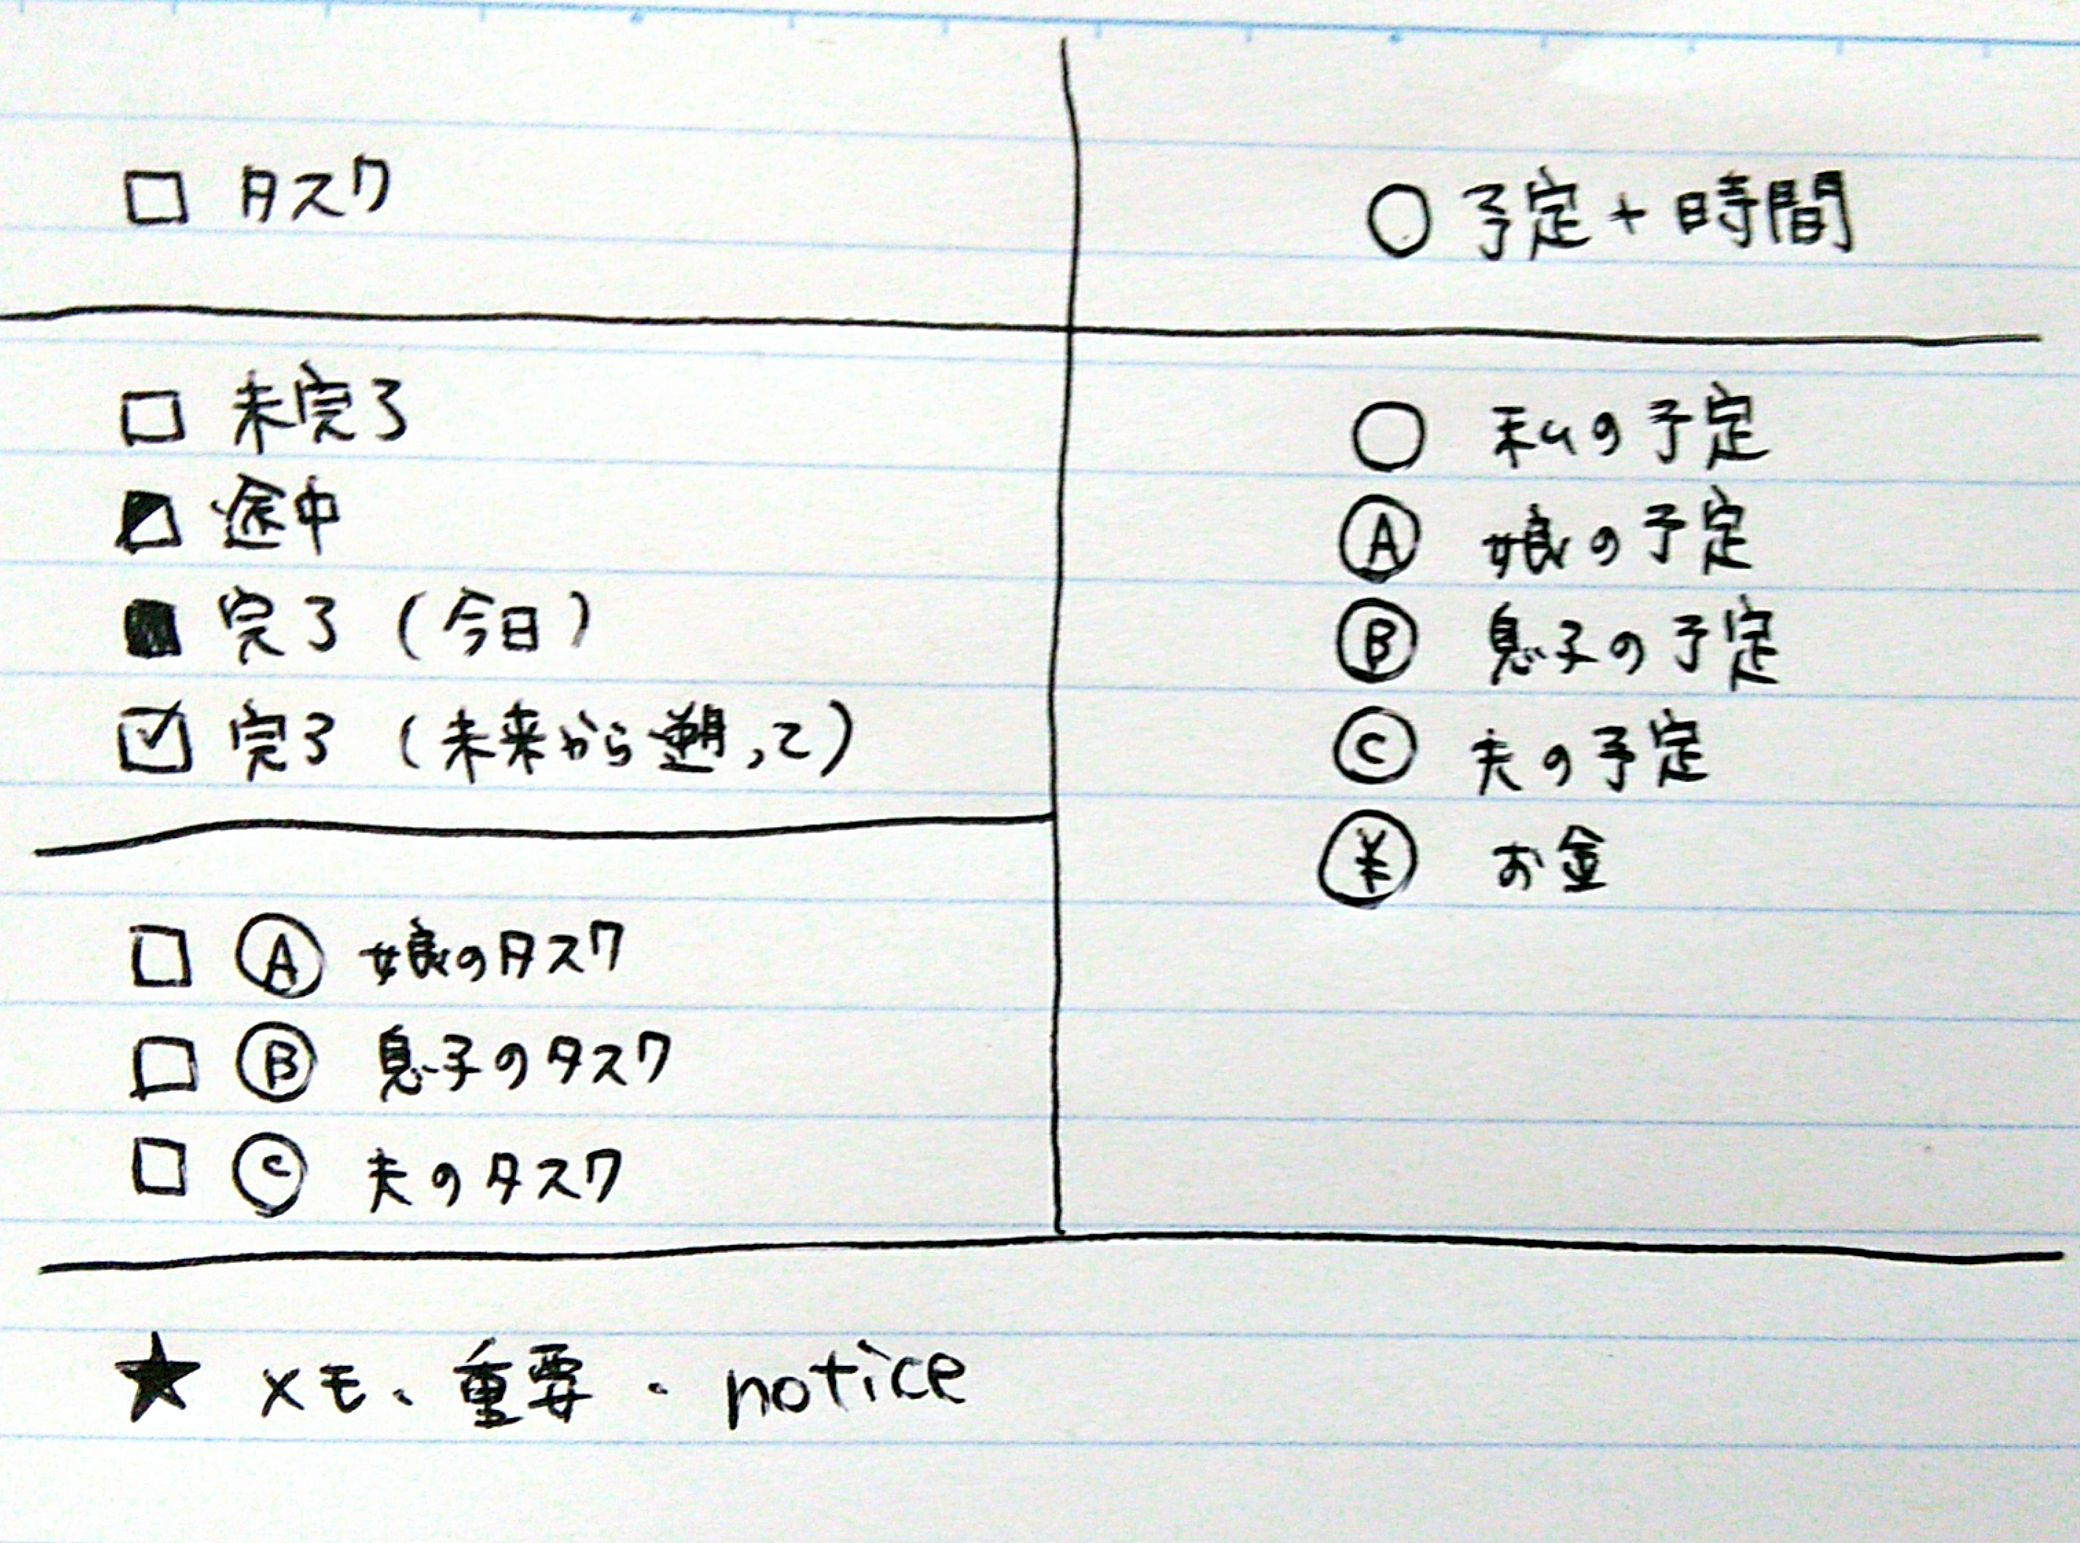 □ タスク
○ 予定 + 時間
□ 未完了
◩ 途中
■ 完了 (今日)
☑ 完了 (未来から遡って)
□ Ⓐ 娘のタスク
□ Ⓑ 息子のタスク
□ Ⓒ 夫のタスク
○ 私の予定
Ⓐ 娘の予定
Ⓑ 息子の予定
Ⓒ 夫の予定
¥ お金
★ メモ、重要・notice